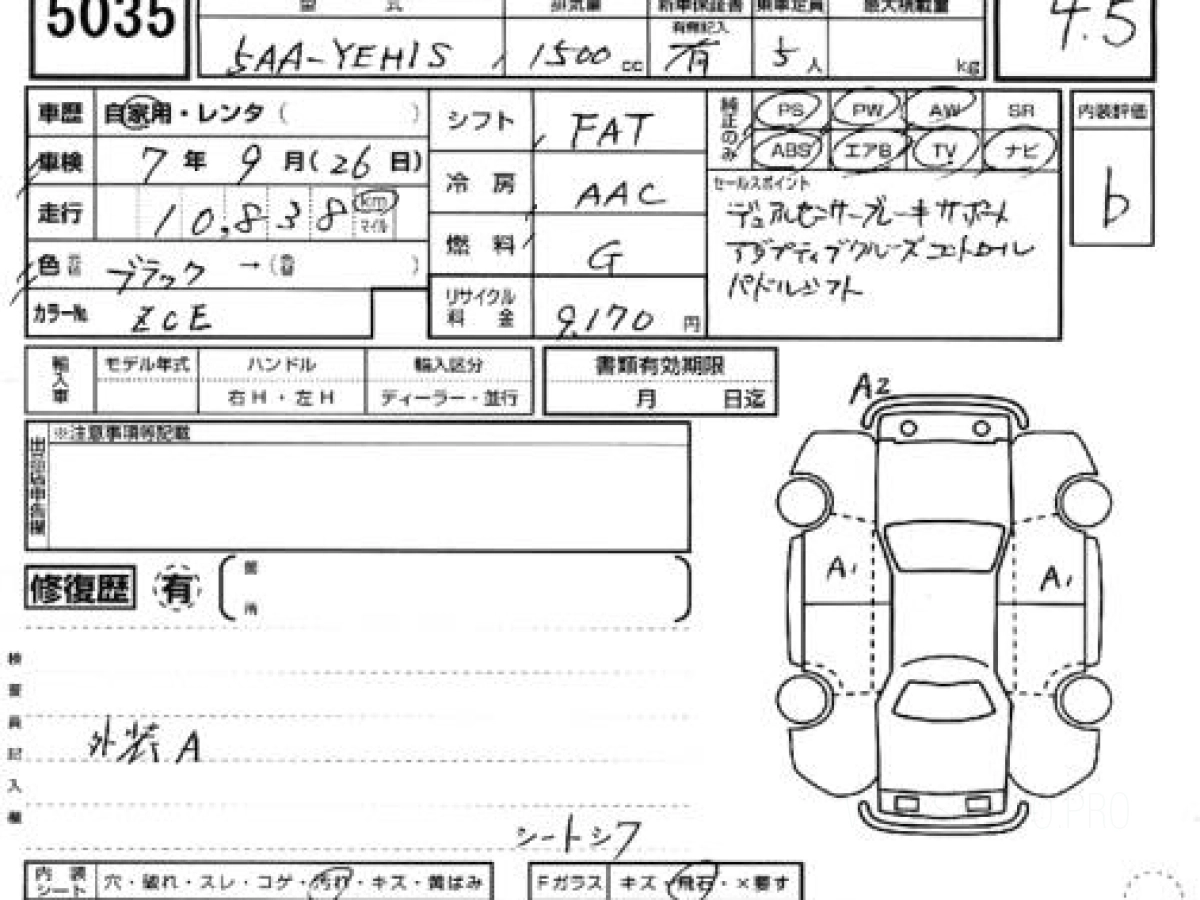 5035
型 式 排気量 新車保証書 乗車定員 最大積載量
有無記入
5AA-YEH1S 1500 cc 有 5人 kg
4.5
車歴 自家用・レンタ ( )
車検 7年 9月(26日)
走行 10,838 km マイル
色 ブラック →( )
カラーNo. ZCE
シフト FAT
冷房 AAC
燃料 G
リサイクル料金 9,170 円
純正のみ PS PW AW SR
ABS エアB TV ナビ
セールスポイント
デュアルセンサーブレーキサポート
アダプティブクルーズコントロール
パドルシフト
内装評価
b
輸入車 モデル年式 ハンドル 輸入区分
右H・左H ディーラー・並行
書類有効期限
月 日迄
※注意事項等記載
出品店申告欄
修復歴 有
箇所
検査員記入欄
外装A
シートシワ
内装シート 穴・破れ・スレ・コゲ・汚れ・キズ・黄ばみ
Fガラス キズ・飛石・×要す
A2
A1 A1
PRO